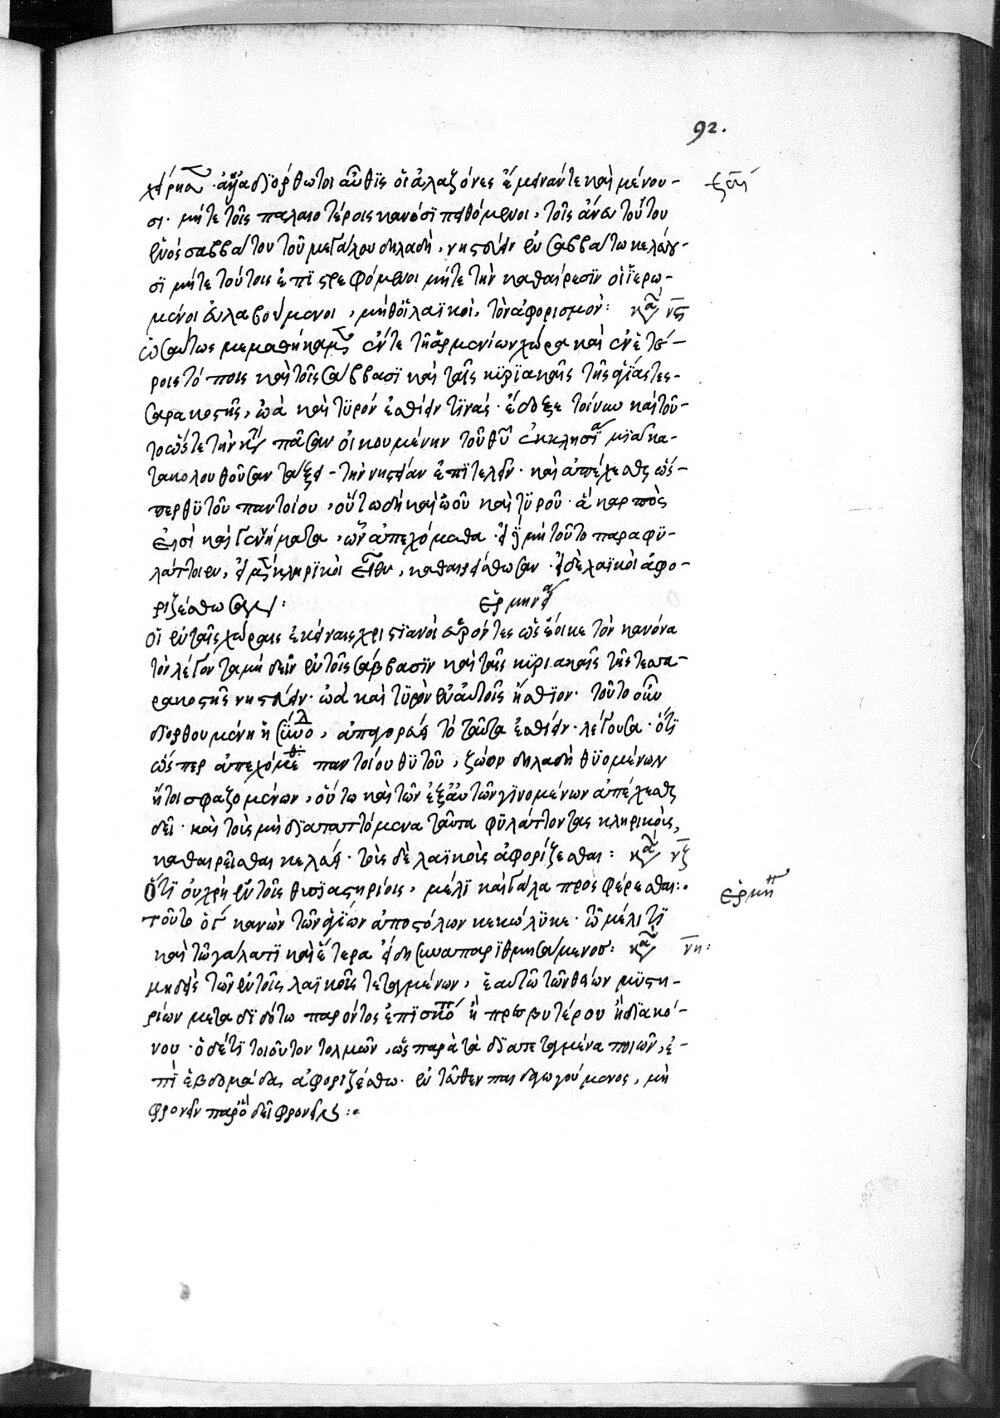 92.
ἀδιόρθωτοι αὖθις οἱ ἀλαζόνες ἔμειναν τε καὶ μένου-
σι· μήτε τοῖς παλαιοτέροις κανόσι πειθόμενοι, τοῖς ἄνευ τούτου
ἑνὸς σαββάτου τοῦ μεγάλου δηλαδὴ, νηστεύειν ἐν σαββάτω κελεύου-
σι μήτε τούτοις ἐπιστρεφόμενοι μήτε τὴν καθαίρεσιν οἱ ἱερω-
μένοι εὐλαβούμενοι, μήθ' οἱ λαϊκοὶ, τὸν ἀφορισμόν: κα νς
ὡσαύτως μεμαθήκαμεν ἔν τε τῆ ἀρμενίων χώρα καὶ ἐν ἑτέ-
ροις τόποις καὶ τοῖς σάββασι καὶ ταῖς κυριακαῖς τῆς ἁγίας τεσ-
σαρακοστῆς, ὠὰ καὶ τυρὸν ἐσθίειν τινάς· ἔδοξε τοίνυν καὶ τοῦ-
το ὥστε τὴν κατὰ πᾶσαν οἰκουμένην τοῦ θυ ἐκκλησίαν μιᾶ κα-
τακολουθοῦσαν τάξει τὴν νηστείαν ἐπιτελεῖν· καὶ ἀπέχεσθαι ὥσ-
περ θυτοῦ παντοίου, οὕτω δὴ καὶ ὠοῦ καὶ τυροῦ· ἃ καρπὸς
εἰσὶ καὶ γεννήματα, ὧν ἀπεχόμεθα· εἰ δὲ μὴ τοῦτο παραφυ-
λάττοιεν, εἰ μὲν κληρικοὶ εἶεν, καθαιρείσθωσαν· εἰ δὲ λαϊκοὶ ἀφο-
ριζέσθωσαν: ἑρμηνεία
Οἱ ἐν ταῖς χώραις ἐκείναις χριστιανοὶ εὑρόντες ὡς ἔοικε τὸν κανόνα
τὸν λέγοντα μὴ δεῖν ἐν τοῖς σάββασιν καὶ ταῖς κυριακαῖς τῆς τεσσα-
ρακοστῆς νηστεύειν· ὠὰ καὶ τυρὸν ἐν αὐτοῖς ἤσθιον· τοῦτο οὖν
διορθουμένη ἡ σύνοδος, ἀπαγορεύει τὸ ταῦτα ἐσθίειν· λέγουσα· ὅτι
ὥσπερ ἀπεχόμεθα παντοίου θυτοῦ, ζώων δηλαδὴ θυομένων
ἤτοι σφαζομένων, οὕτω καὶ τῶν ἐξ αὐτῶν γινομένων ἀπέχεσθαι
δεῖ· καὶ τοὺς μὴ ταῦτα φυλάττοντας κληρικοὺς,
καθαιρεῖσθαι κελεύει· τοὺς δὲ λαϊκοὺς ἀφορίζεσθαι: κα νζ
Ὅτι οὐ χρὴ ἐν τοῖς θυσιαστηρίοις, μέλι καὶ γάλα προσφέρεσθαι:
Τοῦτο ὁ γ κανὼν τῶν ἁγίων ἀποστόλων κεκώλυκε· τῶ μέλιτι
καὶ τῶ γάλατι καὶ ἕτερα εἴδη συναπαριθμησάμενος: κα νη:
μηδεὶς τῶν ἐν τοῖς λαϊκοῖς τεταγμένων, ἑαυτῶ τῶν θείων μυστη-
ρίων μεταδιδότω παρόντος ἐπισκόπου ἢ πρεσβυτέρου ἢ διακό-
νου· ὁ δέ τι τοιοῦτον τολμῶν, ὡς παρὰ τὰ διατεταγμένα ποιῶν, ἐ-
πὶ ἑβδομάδα, ἀφοριζέσθω· ἐντεῦθεν παιδαγωγούμενος, μὴ
φρονεῖν παρ' ὃ δεῖ φρονεῖν:
ἑρμη